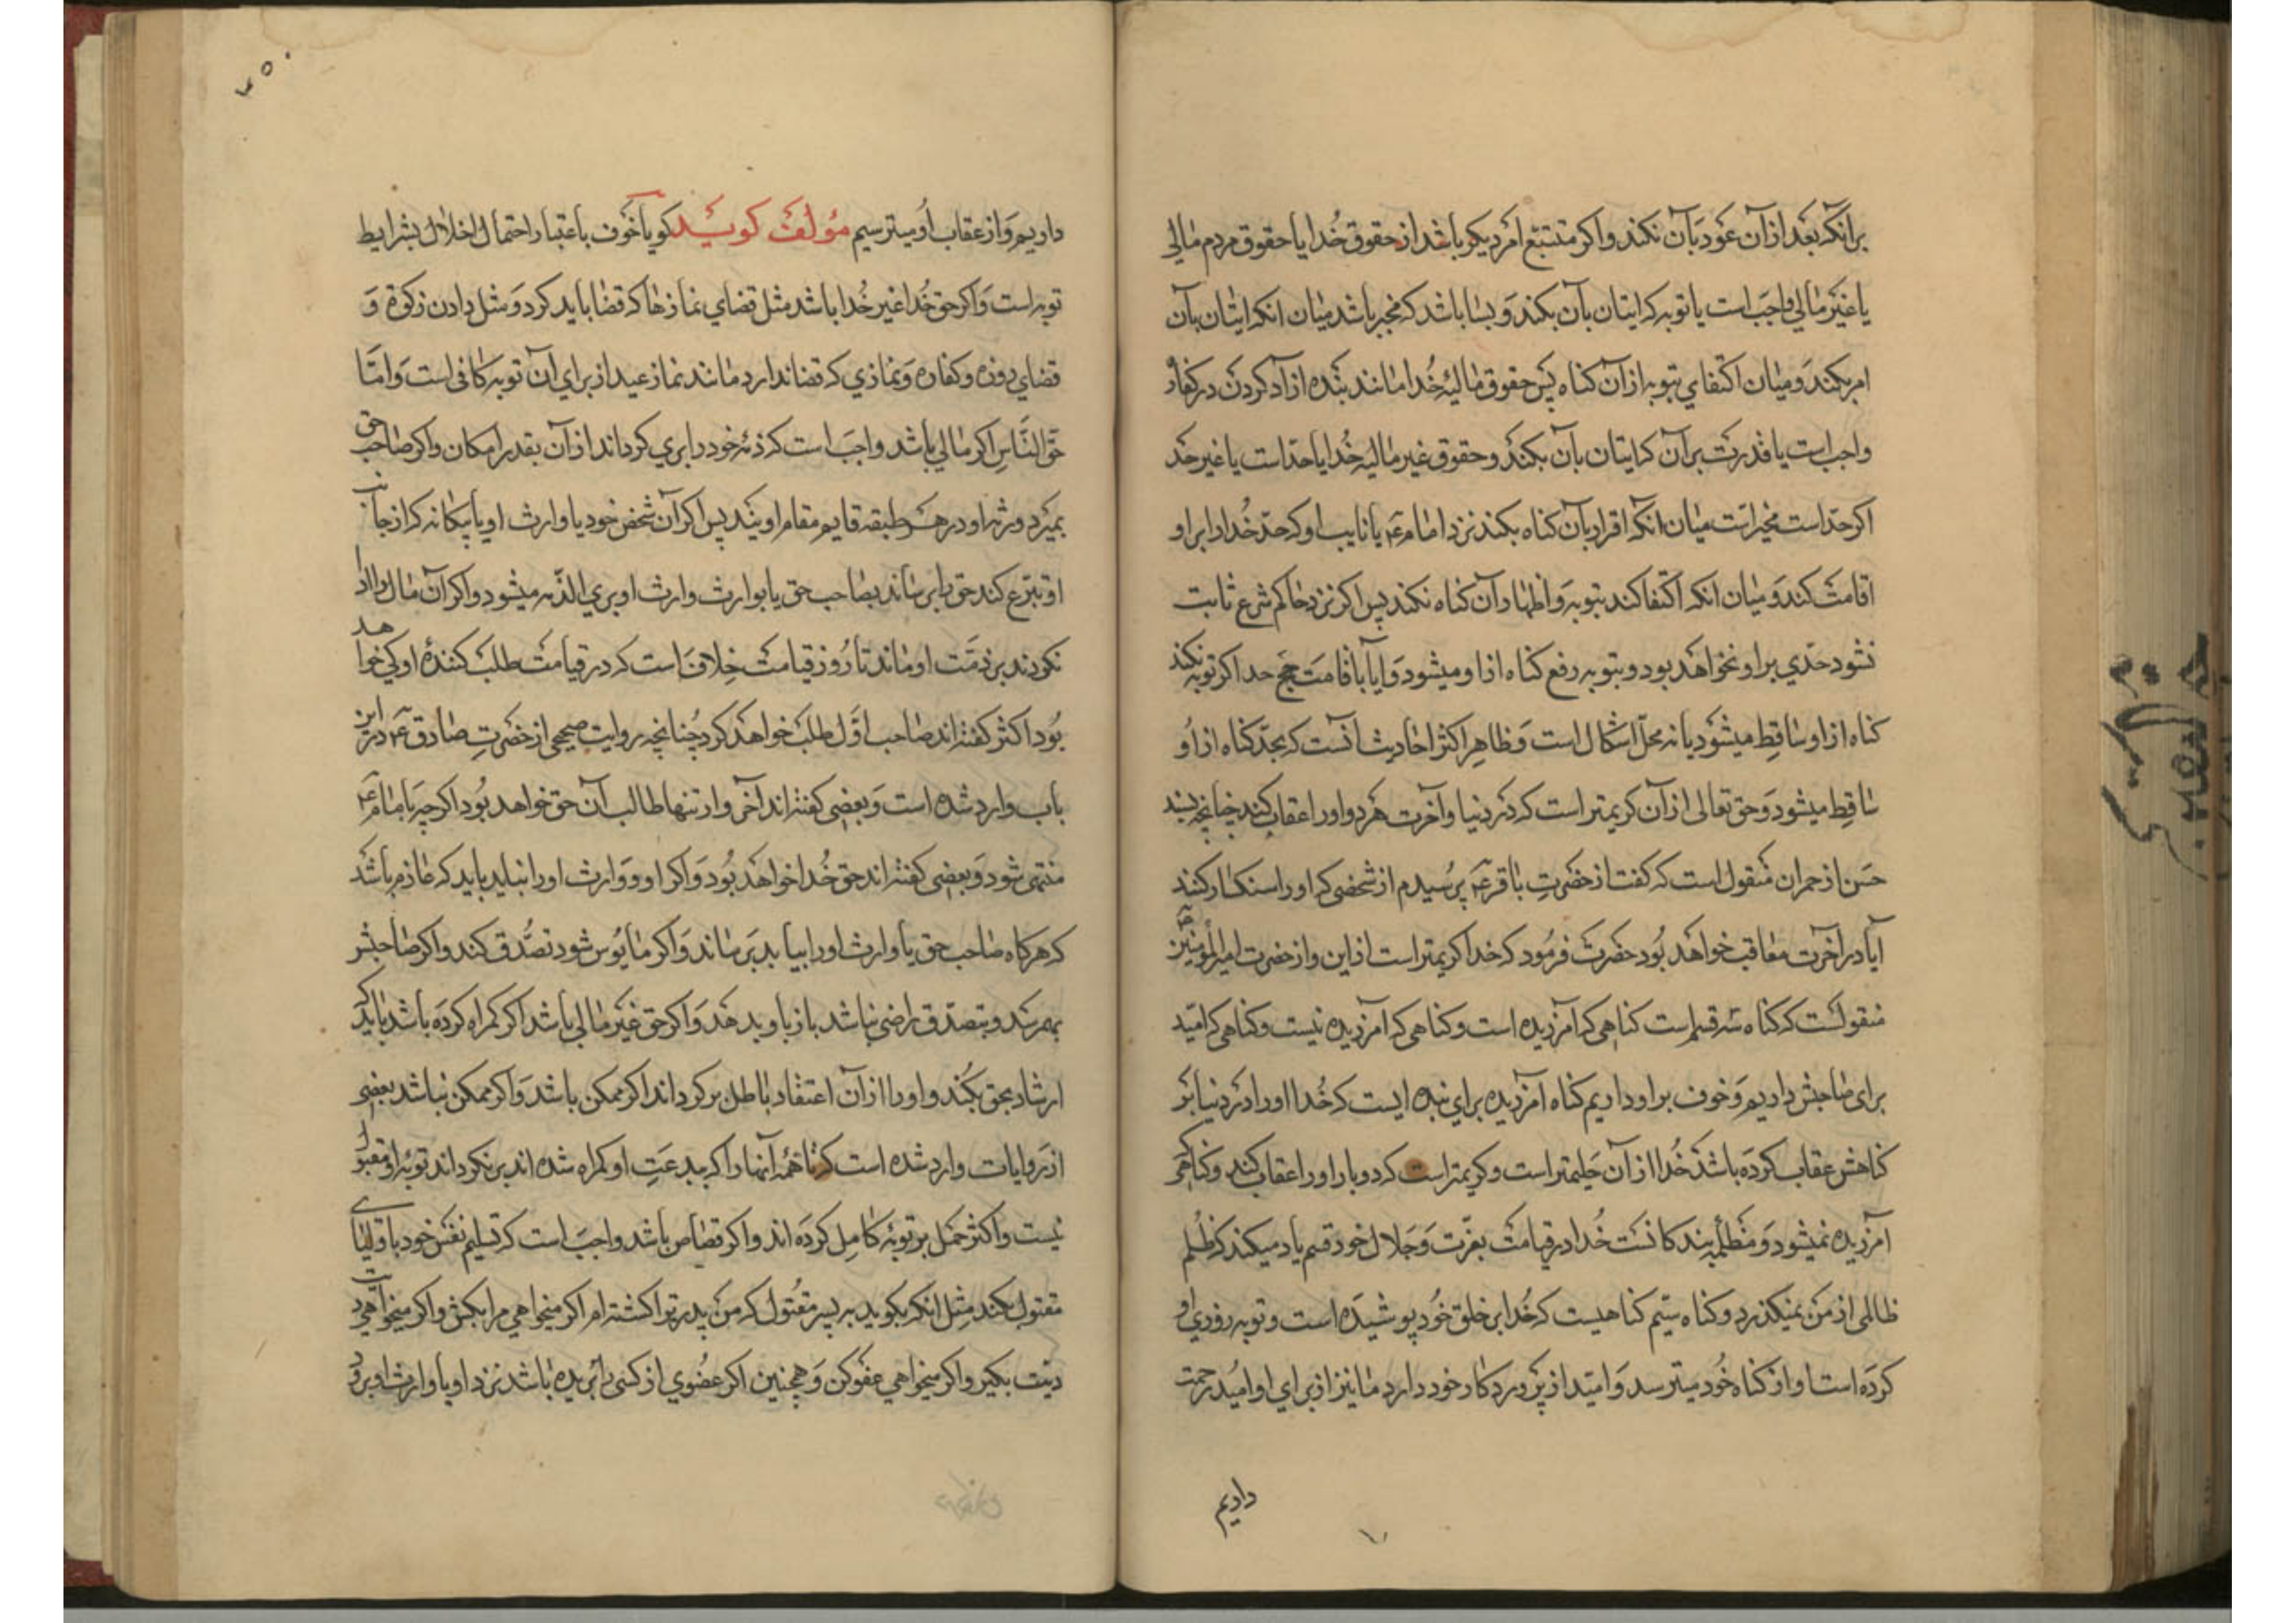 برانکه بعد از آن عود بآن نکند و اکر متتبع امر دیکر باشد از حقوق خدا یا حقوق مردم مالی
یا غیر مالی واجب است یا توبه که ایتان بآن بکند و بسا باشد که مخیر باشد میان انکه ایتان بآن
امر بکند و میان اکتفای بتوبه از آن کناه پس حقوق مالیهٔ خدا مانند بنده آزاد کردن در کفاره
واجب است با قدرت بر آن که ایتان بآن بکند و حقوق غیر مالیه خدا یا حد است یا غیر حد
اکر حد است مخیر است میان انکه اقرار بآن کناه بکند نزد امام ع یا نایب او که حد خدا را بر او
اقامت کند و میان انکه اکتفا کند بتوبه و اظهار آن کناه نکند پس اکر نزد حاکم شرع ثابت
نشود حدی بر او نخواهد بود و بتوبه رفع کناه از او میشود و ایا باقامت حد اکر توبه نکند
کناه از او ساقط میشود یا نه محل اشکال است و ظاهر اکثر احادیث آنست که بحد کناه از او
ساقط میشود و حق تعالی از آن کریمتر است که در دنیا و آخرت هر دو او را عقاب کند چنانچه بسند
حسن از حمران منقول است که کفت از حضرت باقر ع پرسیدم از شخصی که او را سنکسار کنند
آیا در آخرت معاقب خواهد بود حضرت فرمود که خدا کریمتر است از این و از حضرت امیر المؤمنین
منقولست که کناه سه قسم است کناهی که آمرزیده است و کناهی که آمرزیده نیست و کناهی که امید
برای صاحبش داریم و خوف بر او داریم کناه آمرزیده برای بنده ایست که خدا او را در دنیا بر
کناهش عقاب کرده باشد خدا از آن حلیمتر است و کریمتر است که دوبار او را عقاب کند و کناهی که
آمرزیده نمیشود و مظلمه بندکانست خدا در قیامت بعزت و جلال خود قسم یاد میکند که ظلم
ظالمی از من نمیکذرد و کناه سیم کناهیست که خدا بر خلق خود پوشیده است و توبه روزی او
کرده است و او از کناه خود میترسد و امید از پروردکار خود دارد ما نیز از برای او امید رحمت
داریم
۳۵۰
داریم و از عقاب او میترسیم مؤلف کوید کویا خوف باعتبار احتمال اخلال بشرایط
توبه است و اکر حق خدا غیر خدا باشد مثل قضای نمازها که قضا باید کرد و مثل دادن زکوة و
قضای روزه و کفاره و نمازی که قضا ندارد مانند نماز عید از برای آن توبه کافی است و امّا
حق الناس اکر مالی باشد واجب است که ذمه خود را بری کرداند از آن بقدر امکان و اکر صاحب حق
بمیرد ورثه او در هر طبقه قایم مقام اویند پس اکر آن شخص خود یا وارث او یا بیکانه که از جانب
او تبرع کند حق را برساند بصاحب حق یا بوارث وارث او بری الذمه میشود و اکر آن مال را ادا
نکردند بر ذمت او ماند تا روز قیامت خلاف است که در قیامت طلب کنندهٔ او کی خواهد
بود اکثر کفته اند صاحب اول طلب خواهد کرد چنانچه روایت صحیحی از حضرت صادق ع در این
باب وارد شده است و بعضی کفته اند آخر وارثها طالب آن حق خواهد بود اکر چه بامام ع
منتهی شود و بعضی کفته اند حق خدا خواهد بود و اکر او و وارث او را نیابد باید که عازم باشد
که هرکاه صاحب حق یا وارث او را بیابد برساند و اکر مایوس شود تصدق کند و اکر صاحبش
بهمرسد و بتصدق راضی نباشد باز باو بدهد و اکر حق غیر مالی باشد اکر کمراه کرده باشد باید که
ارشاد بحق بکند و او را از آن اعتقاد باطل برکرداند اکر ممکن باشد و اکر ممکن نباشد بعضی
از روایات وارد شده است که تا همهٔ آنها را که ببدعت او کمراه شده اند برنکرداند توبهٔ او مقبول
نیست و اکثر حمل بر توبهٔ کامل کرده اند و اکر قصاص باشد واجب است که تسلیم نفس خود باولیای
مقتول بکند مثل انکه بکوید به پسر مقتول که من پدر تو را کشته ام اکر میخواهی مرا بکش و اکر میخواهی
دیت بکیر و اکر میخواهی عفو کن و همچنین اکر عضوی از کسی بریده باشد نزد او یا وارث او برود